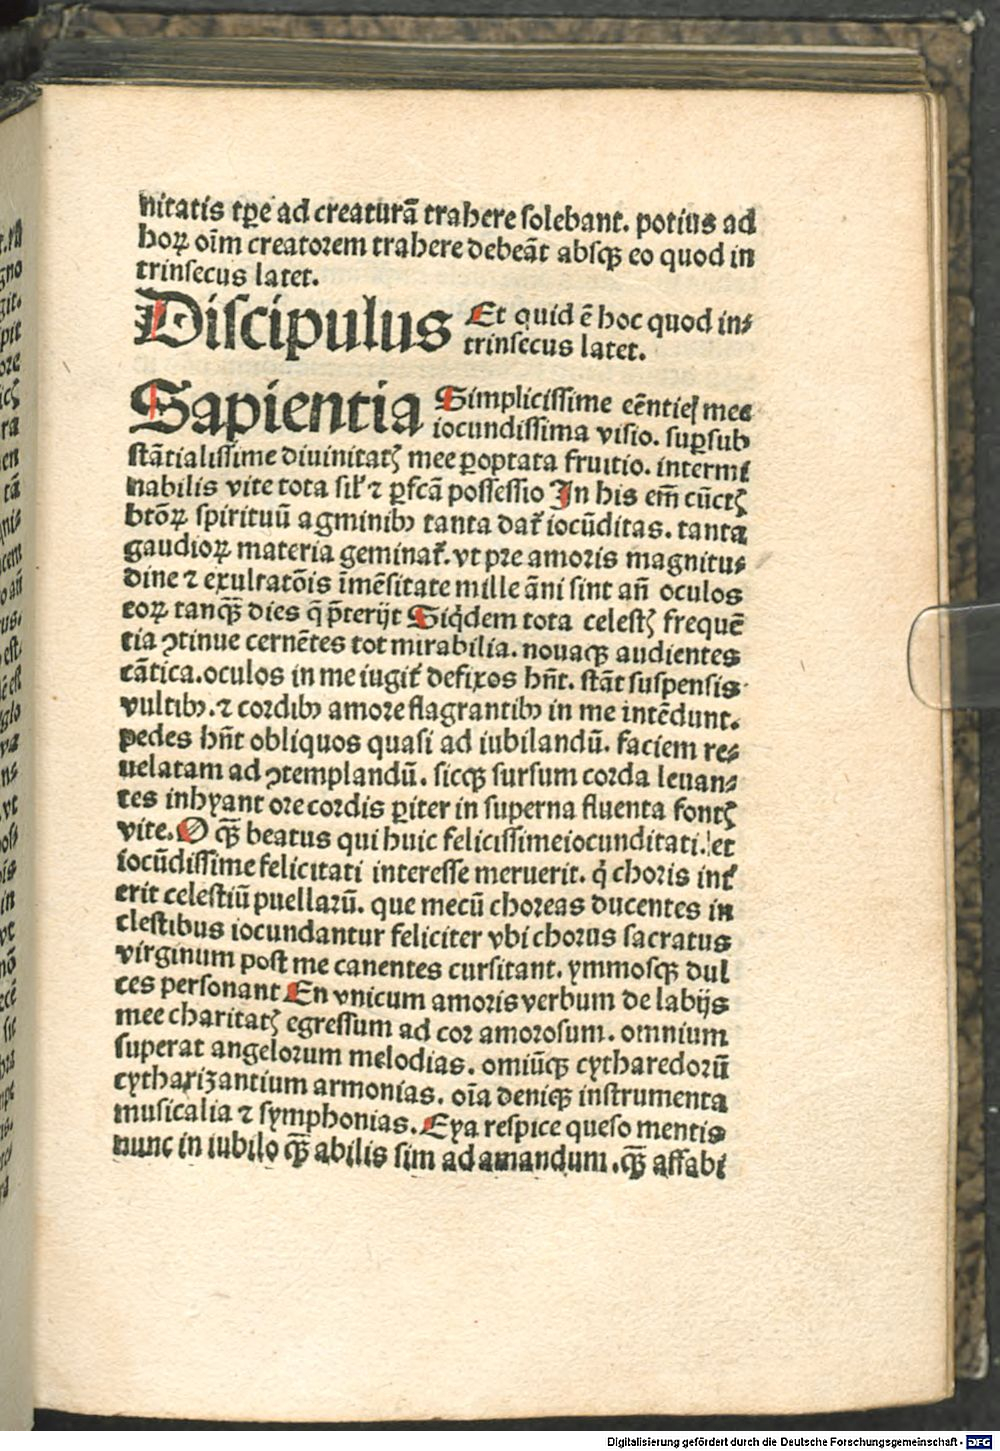 nitatis tꝑe ad creaturā trahere solebant. potius ad
hoꝝ oīm creatorem trahere debeāt absqꝫ eo quod in
trinsecus latet.
Discipulus Et quid ē hoc quod in⸗
trinsecus latet.
Sapientia Simplicissime eētię mee
iocundissima visio. suꝑsub
stātialissime diuinitatꝭ mee ꝑoptata fruitio. intermi
nabilis vite tota sil' ⁊ ꝑfcā possessio In his em̄ cūctꝭ
btōꝝ spirituū agminibꝰ tanta dat̄ iocūditas. tanta
gaudioꝝ materia geminat̄. vt pre amoris magnitu⸗
dine ⁊ exultatōis īmēsitate mille āni sint an̄ oculos
eoꝝ tanqꝫ̄ dies q̄ p̄terijt Siqͥdem tota celestꝭ frequē
tia ꝯtinue cernētes tot mirabilia. nouaqꝫ audientes
cātica. oculos in me iugit̄ defixos hn̄t. stāt suspensis
vultibꝰ. ⁊ cordibꝰ amore flagrantibꝰ in me intēdunt.
pedes hn̄t obliquos quasi ad iubilandū. faciem re⸗
uelatam ad ꝯtemplandū. sicqꝫ sursum corda leuan⸗
tes inhyant ore cordis ꝑiter in superna fluenta fontꝭ
vite. O qꝫ̄ beatus qui huic felicissimeiocunditati. et
iocūdissime felicitati interesse meruerit. qͥ choris int̄
erit celestiū puellarū. que mecū choreas ducentes in
clestibus iocundantur feliciter vbi chorus sacratus
virginum post me canentes cursitant. ymmosqꝫ dul
ces personant En vnicum amoris verbum de labijs
mee charitatꝭ egressum ad cor amorosum. omnium
superat angelorum melodias. omiūqꝫ cytharedorū
cytharizantium armonias. oīa deniqꝫ instrumenta
musicalia ⁊ symphonias. Eya respice queso mentis
nunc in iubilo qꝫ̄ abilis sim ad amandum. qꝫ̄ affabi
Digitalisierung gefördert durch die Deutsche Forschungsgemeinschaft - DFG